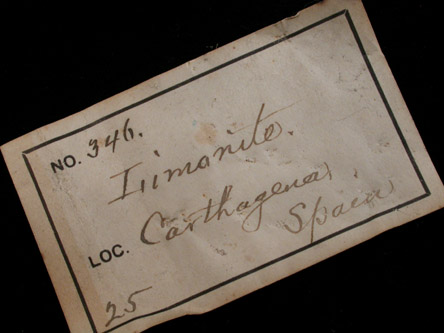 NO. 346.
Limonite.
LOC. Carthagena
Spain
25